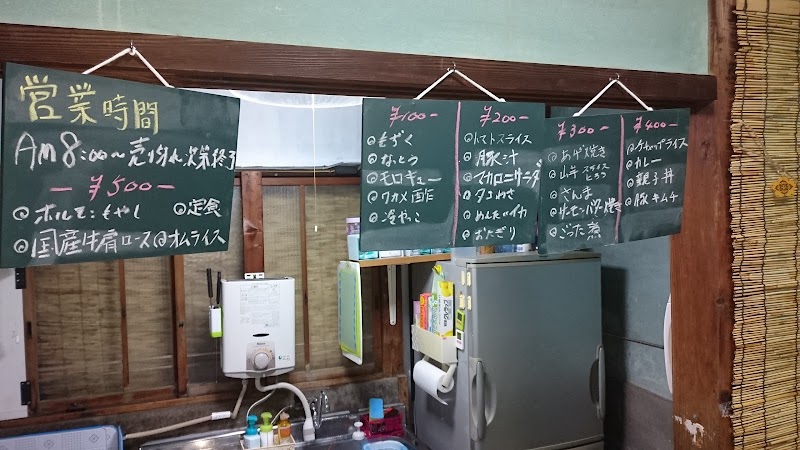 営業時間
AM8:00〜売切れ次第終了
ー¥500ー
◎ホルモンもやし ◎定食
◎国産牛肩ロース◎オムライス
¥100-
◎もずく
◎なっとう
◎モロキュー
◎ワカメ酢
◎冷やっこ
¥200-
◎トマトスライス
◎豚汁
◎マカロニサラダ
◎タコわさ
◎めんたいイカ
◎おにぎり
¥300-
◎あげ焼き
◎山芋 スライス とろろ
◎さんま
◎サーモンバター焼き
◎ごった煮
¥400-
◎ケチャップライス
◎カレー
◎親子丼
◎豚キムチ